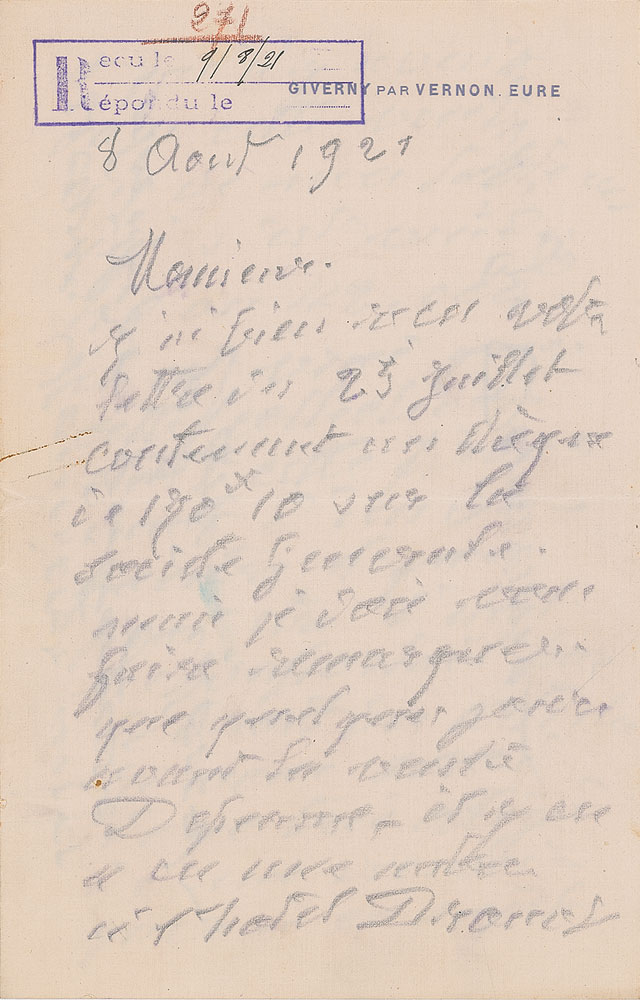 971
Reçu le 9/8/21
Répondu le
GIVERNY PAR VERNON. EURE
8 Aout 1921
Monsieur.
j'ai bien recu votre
lettre du 25 juillet
contenant un chèque
de 190 fr 10 sur la
société generale.
mais je dois vous
faire remarquer
que quelques jours
avant la vente
Descenne, il y en
a eu une autre
à l'hotel Drouot